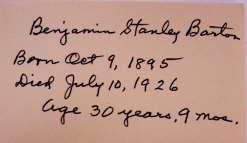 Benjamin Stanley Barton
Born Oct 9, 1895
Died July 10, 1926
Age 30 years, 9 mos.